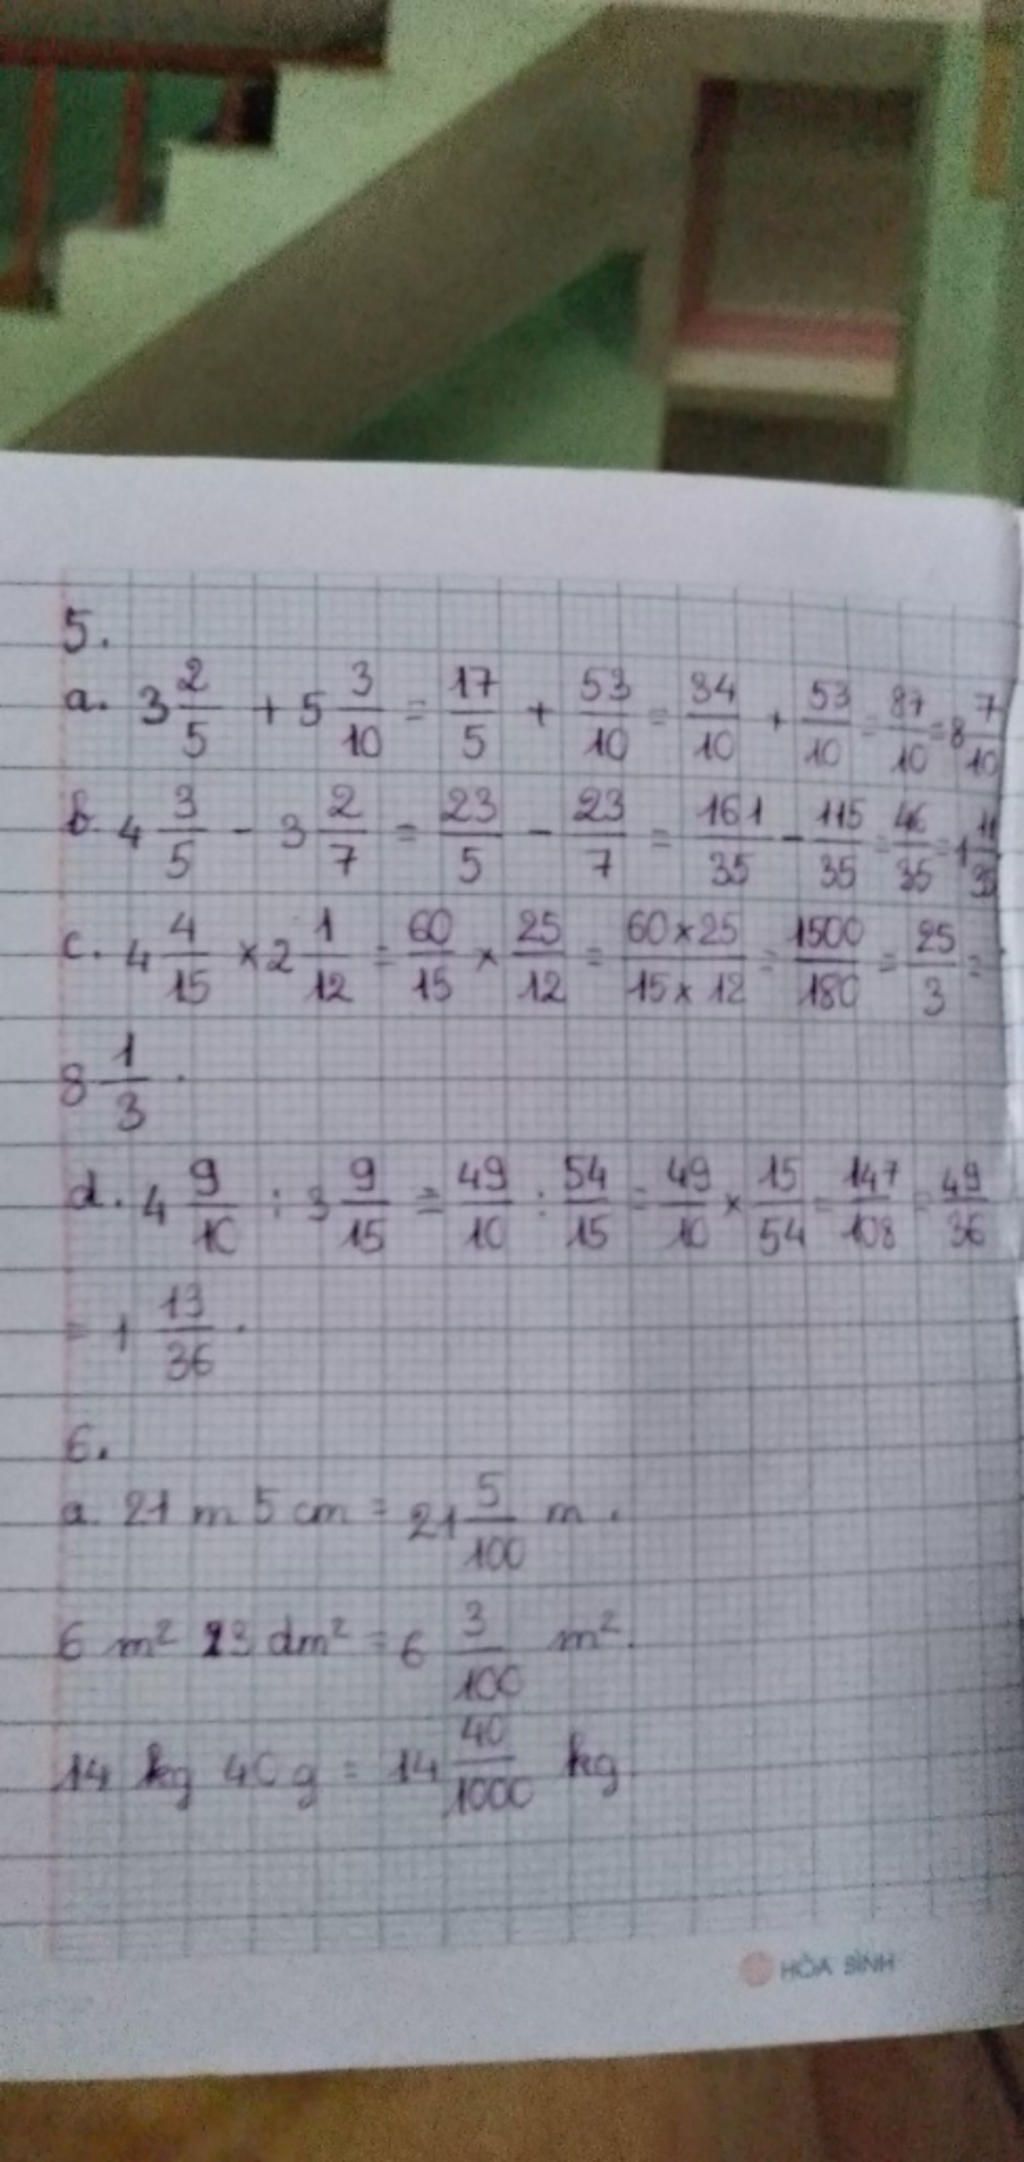 5.
a. 3 2/5 + 5 3/10 = 17/5 + 53/10 = 34/10 + 53/10 = 87/10 = 8 7/10
b. 4 3/5 - 3 2/7 = 23/5 - 23/7 = 161/35 - 115/35 = 46/35 = 1 11/35
c. 4 4/15 × 2 1/12 = 60/15 × 25/12 = 60×25/15×12 = 1500/180 = 25/3 =
8 1/3 .
d. 4 9/10 : 3 9/15 = 49/10 : 54/15 = 49/10 × 15/54 = 147/108 = 49/36
= 1 13/36 .
6.
a. 21 m 5 cm = 21 5/100 m .
6 m² 23 dm² = 6 3/100 m².
14 kg 40 g = 14 40/1000 kg
HÒA BÌNH